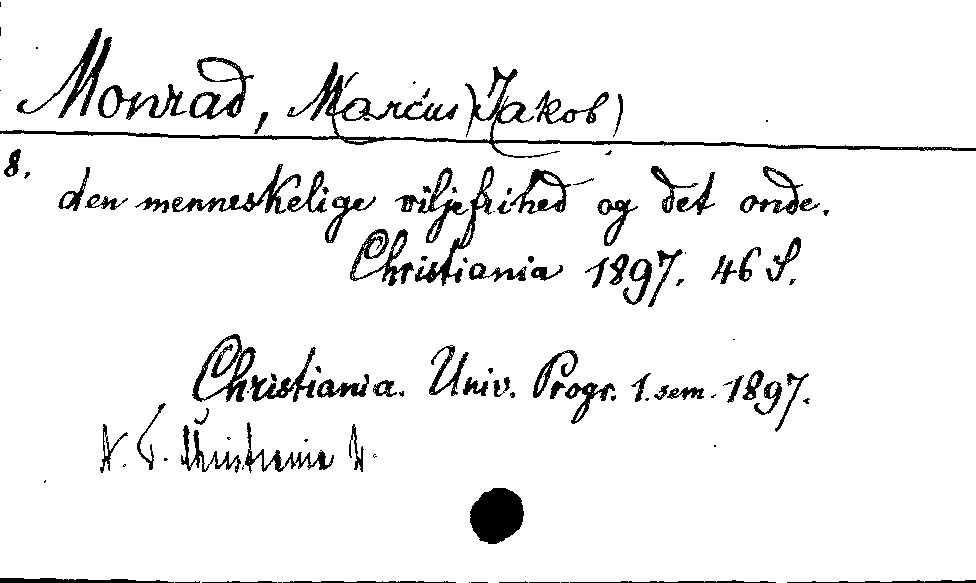 Monrad, Marcus (Jakob)
8.
den menneskelige viljefrihed og det onde.
Christiania 1897. 46 S.
Christiania. Univ. Progr. 1. sem. 1897.
Christiania